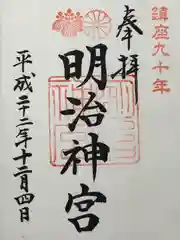 鎮座九十年
奉拝
明治神宮
平成二十二年十二月四日